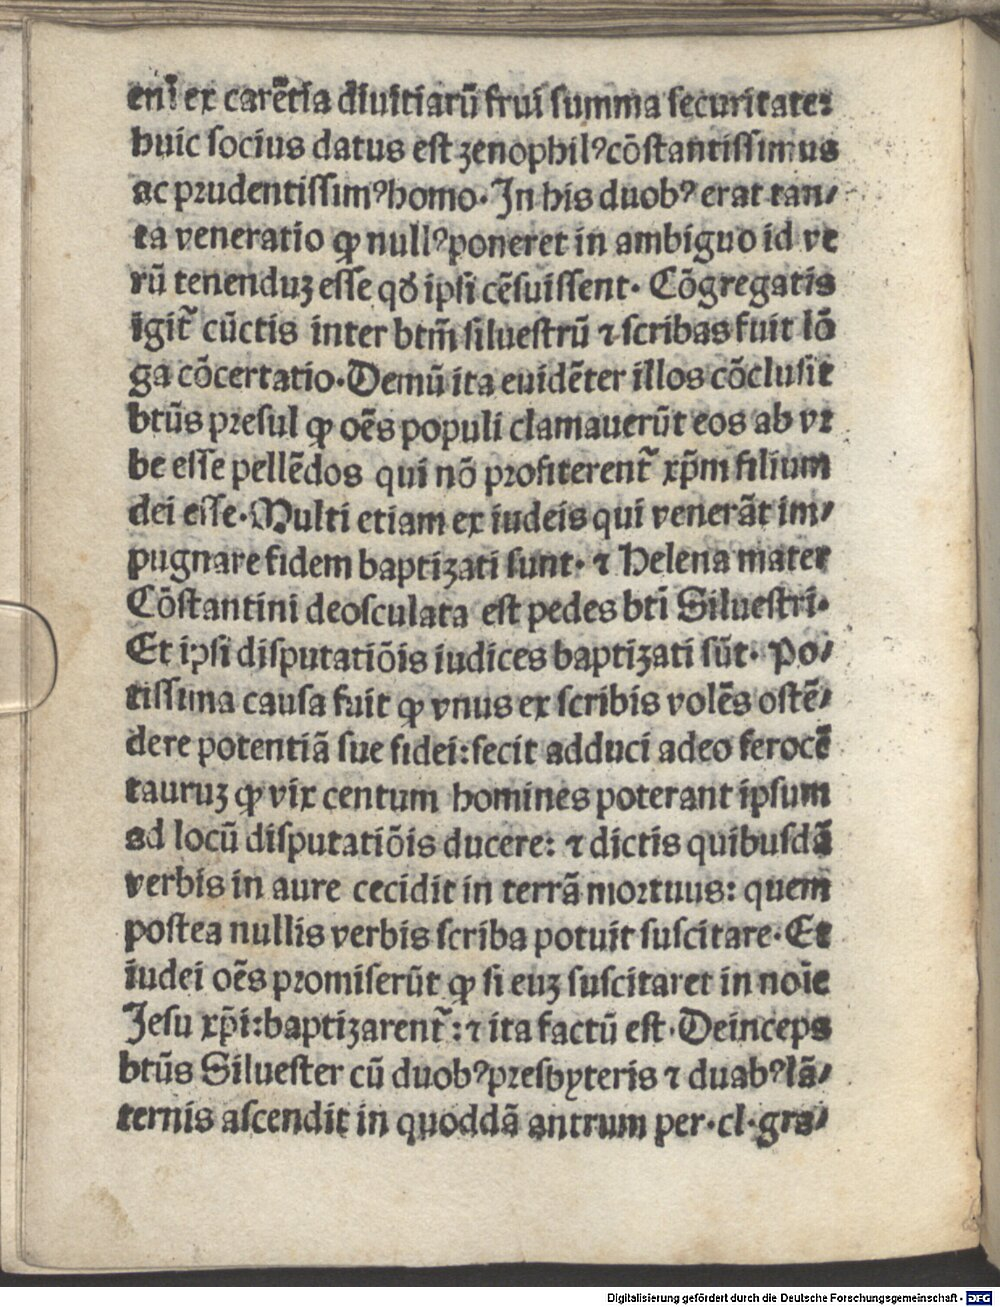 enī ex carētia diuitiarū frui summa securitate:
huic socius datus est zenophilꝰ cōstantissimus
ac prudentissimꝰ homo. In his duobꝰ erat tan⸗
ta veneratio ꝙ nullꝰ poneret in ambiguo id ve
rū tenenduz esse qď ipsi cēsuissent. Cōgregatis
igit᷑ cūctis inter btm̄ siluestrū ⁊ scribas fuit lō
ga cōcertatio. Demū ita euidēter illos cōclusit
btūs presul ꝙ oēs populi clamauerūt eos ab vr
be esse pellēdos qui nō profiterent᷑ xp̄m filium
dei esse. Multi etiam ex iudeis qui venerāt im⸗
pugnare fidem baptizati sunt. ⁊ Helena mater
Cōstantini deosculata est pedes bti Siluestri.
Et ipsi disputatiōis iudices baptizati sūt. Po⸗
tissima causa fuit ꝙ vnus ex scribis volēs ostē⸗
dere potentiā sue fidei: fecit adduci adeo ferocē
tauruz ꝙ vix centum homines poterant ipsum
ad locū disputatiōis ducere: ⁊ dictis quibusdā
verbis in aure cecidit in terrā mortuus: quem
postea nullis verbis scriba potuit suscitare. Et
iudei oēs promiserūt ꝙ si euz suscitaret in noīe
Jesu xp̄i: baptizarent᷑: ⁊ ita factū est. Deinceps
btūs Siluester cū duobꝰ presbyteris ⁊ duabꝰ lā⸗
ternis ascendit in quoddā antrum per .cl. gra⸗
Digitalisierung gefördert durch die Deutsche Forschungsgemeinschaft - DFG